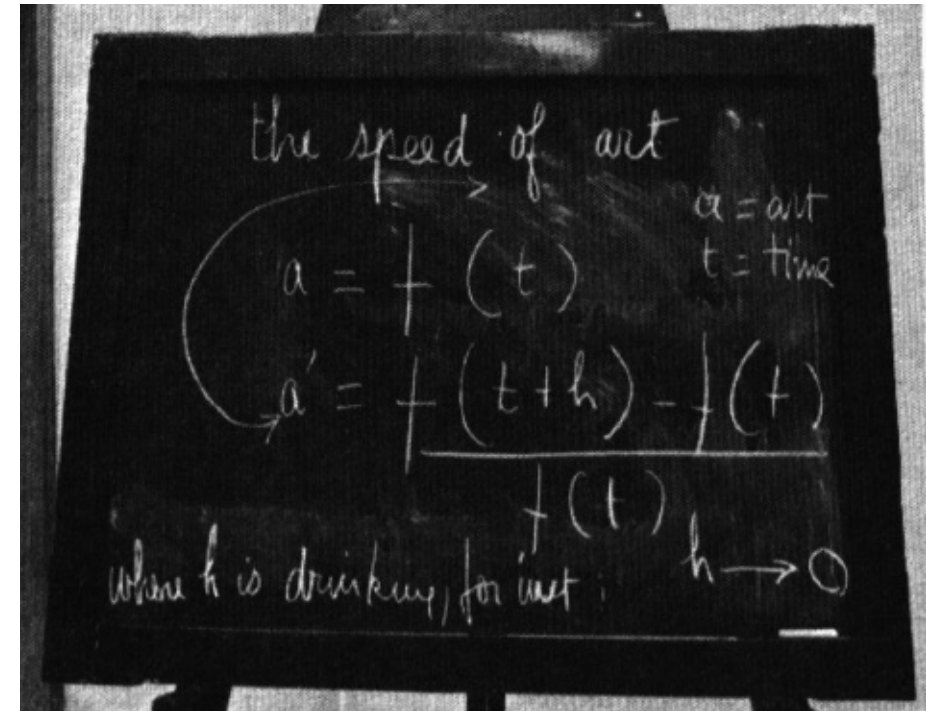 the speed of art
a = art
t = time
a = f (t)
a' = f (t+h) - f (t)
f (t)
h → 0
where h is drinking, for inst.